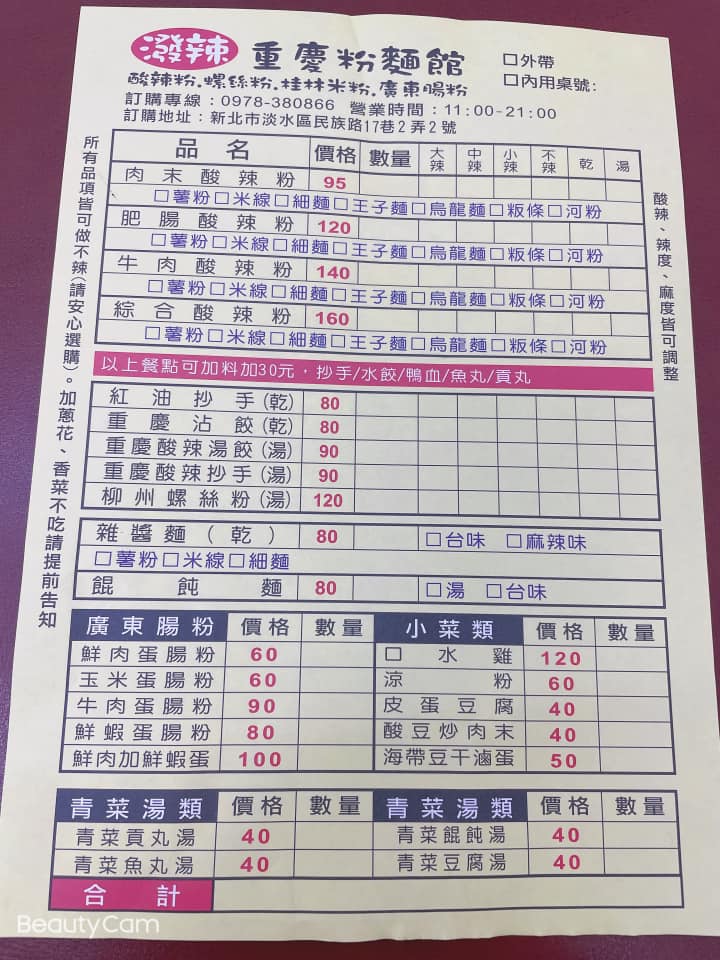 潑辣 重慶粉麵館
□外帶
□內用桌號:
酸辣粉.螺絲粉.桂林米粉.廣東腸粉
訂購專線：0978-380866 營業時間：11:00-21:00
訂購地址：新北市淡水區民族路17巷2弄2號
所有品項皆可做不辣(請安心選購)。加蔥花、香菜不吃請提前告知
酸辣、辣度、麻度皆可調整
品名 價格 數量 大辣 中辣 小辣 不辣 乾 湯
肉末酸辣粉 95
□薯粉□米線□細麵□王子麵□烏龍麵□粄條□河粉
肥腸酸辣粉 120
□薯粉□米線□細麵□王子麵□烏龍麵□粄條□河粉
牛肉酸辣粉 140
□薯粉□米線□細麵□王子麵□烏龍麵□粄條□河粉
綜合酸辣粉 160
□薯粉□米線□細麵□王子麵□烏龍麵□粄條□河粉
以上餐點可加料加30元，抄手/水餃/鴨血/魚丸/貢丸
紅油抄手(乾) 80
重慶沾餃(乾) 80
重慶酸辣湯餃(湯) 90
重慶酸辣抄手(湯) 90
柳州螺絲粉(湯) 120
雜醬麵(乾) 80 □台味 □麻辣味
□薯粉□米線□細麵
餛飩麵 80 □湯 □台味
廣東腸粉 價格 數量
鮮肉蛋腸粉 60
玉米蛋腸粉 60
牛肉蛋腸粉 90
鮮蝦蛋腸粉 80
鮮肉加鮮蝦蛋 100
小菜類 價格 數量
口水雞 120
涼粉 60
皮蛋豆腐 40
酸豆炒肉末 40
海帶豆干滷蛋 50
青菜湯類 價格 數量
青菜貢丸湯 40
青菜魚丸湯 40
青菜湯類 價格 數量
青菜餛飩湯 40
青菜豆腐湯 40
合計
BeautyCam